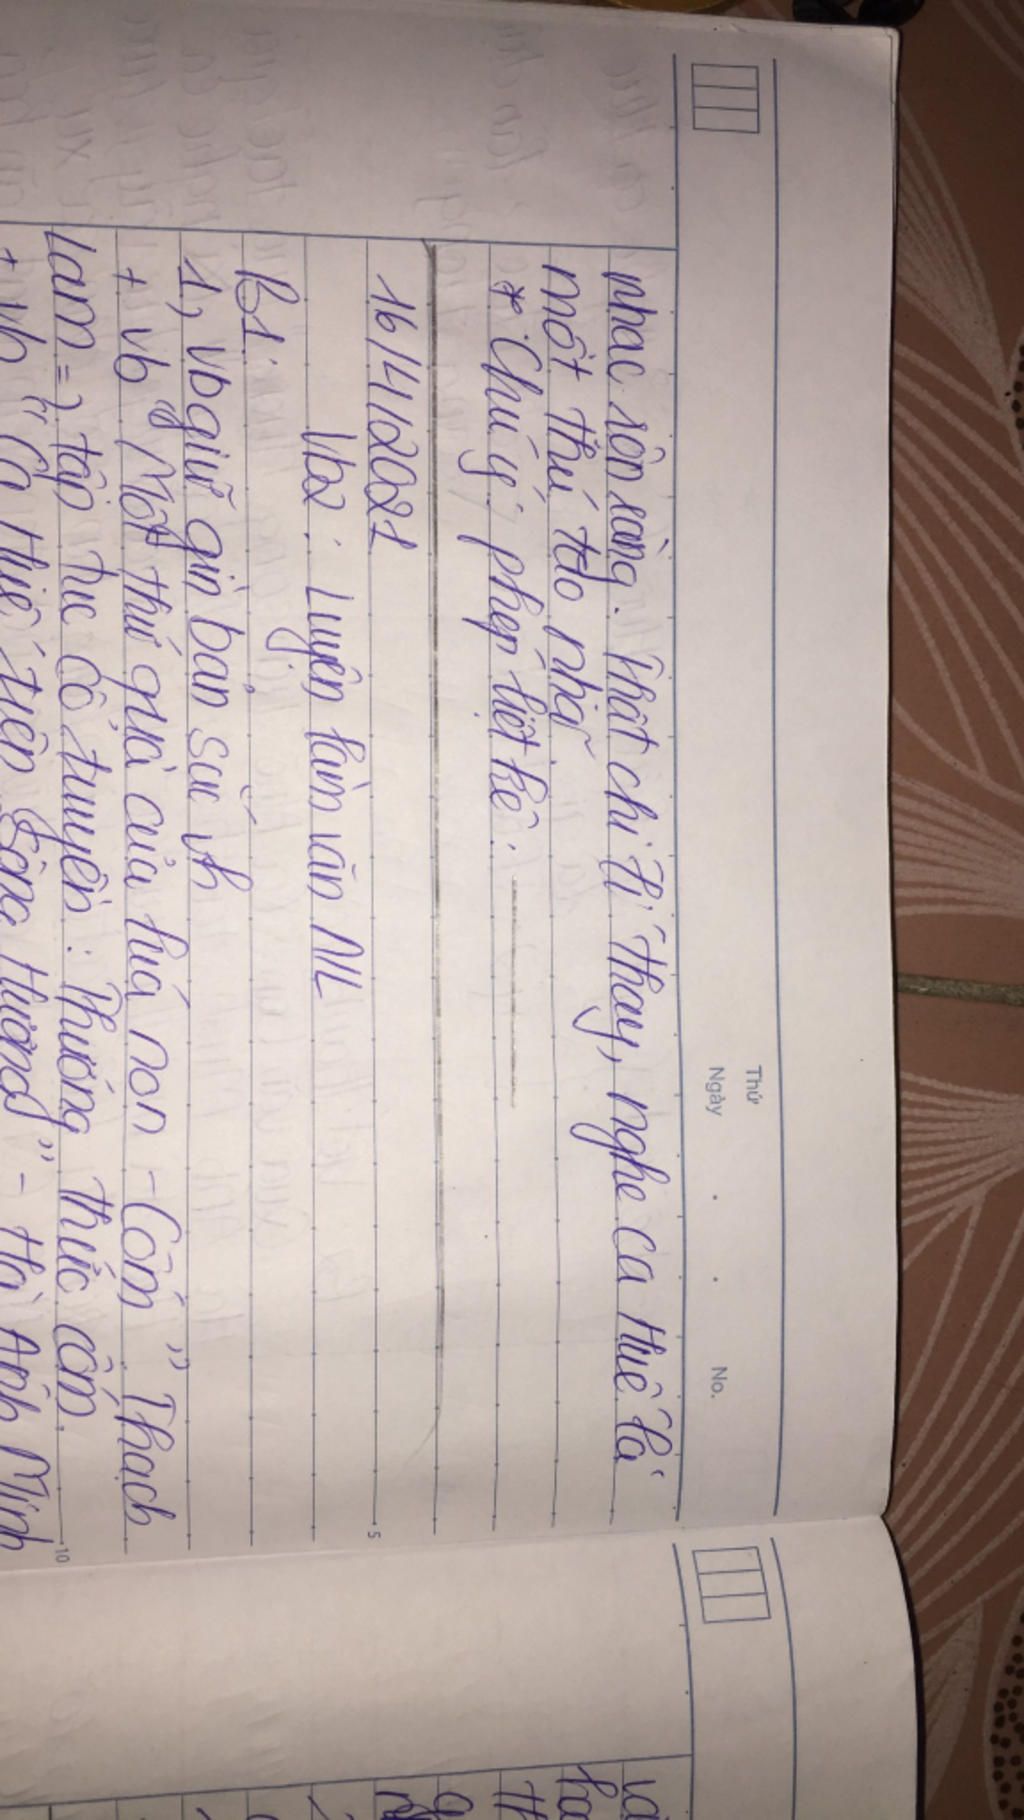 Thứ
Ngày . . No.
nhạc sôn sàng. Nhất chi Tị thay, nghe ca Huế là
một thú tao nhã.
* Chú ý: phép liệt kê.
16/4/2021
Vb2: Luyện làm văn NL
B1:
1, Vb giữ gìn bản sắc vh
+ Vb "Một thứ quà của lúa non - Cốm" Thạch
Lam => tập tục cổ truyền: Thưởng thức cốm.
+ Vb "Ca Huế trên sông Hương" - Hà Ánh Minh
5
10